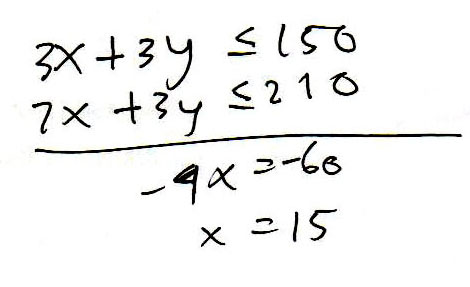 3x + 3y ≤ 150
7x + 3y ≤ 210
-4x = -60
x = 15